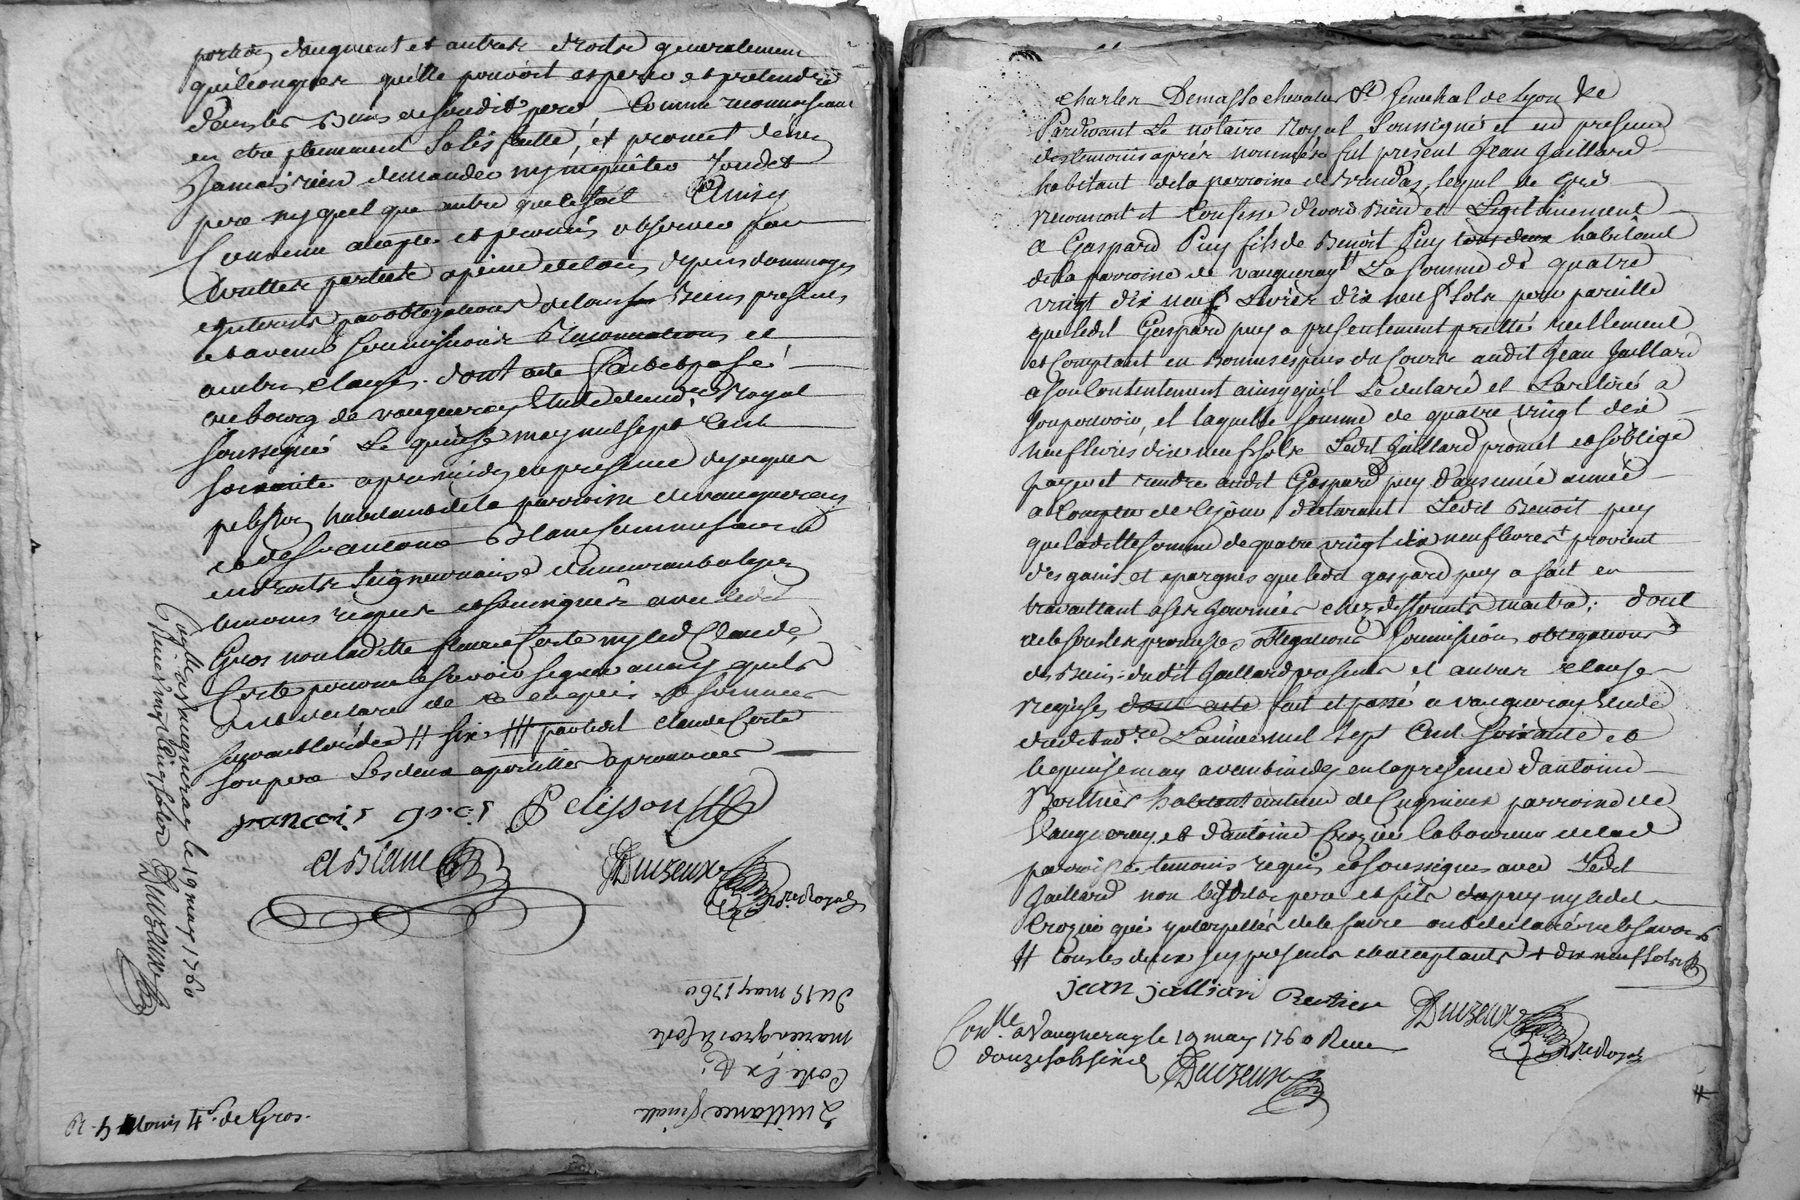 portion d'augment et autres droits generalement
quelconques quelle pouvoit esperer et pretendre
dans les Biens de sondit pere comme reconnoissant
en etre plainement satisfaitte, et promet de n'en
Jamais rien demander ny inquiêter Sondit
pere ny quel que autre que le soit Ainsy
Convenu accepté et promis observer par
lesdittes parties a peine de tous depens dommages
interests par obligations de tous Biens presents
et avenir soumissions Renonciations et
autres clauses. dont acte fait et passé
au bourg de vaugneray Etude dud. n.re Royal
soussigné Le quinze may mil sept Cent
soixante apres midy en presence de jaques
pelisson habitant de la parroisse de vaugneray
et de Blanc commissaire
en droits seigneuriaux demeurant
temoins requis et soussignés avec ledit
Gros non laditte Corte ny led Claude
Corte pour ne sçavoir signer ainsy quils
ont declaré de ce enquis et sommés
suivant lordce # six ### par ledit Claude Corte
son pere Les deux apostilles aprouvées
francois gros Pelisson
A Blanc Duizeux n.re Royal
Con.lle a vaugneray le 19 may 1760
Duizeux
Du 15 may 1760
marie gros & Corte
Quittance finale
R. 4. de Gros.
Charles Demasso chevalier S.l Senechal de Lyon &c
Pardevant Le notaire Royal Soussigné et en presence
des temoins aprés nommés fut present Jean Jaillard
habitant de la parroisse de Brindas, lequel de gré
reconnoit et Confesse devoir Bien et Legitimement
a Gaspard Puy fils de Benoit Puy tous deux habitant
de la parroisse de vaugneray # La somme de quatre
vingt dix neuf Livres dix neuf sols pour pareille
que ledit Gaspard puy a presentement pretté reellement
et Comptant en Bonnes especes du Cours audit Jean Jaillard
a son Contentement ainsy quil Le declare et La retiré a
son pouvoir, et laquelle somme de quatre vingt dix
neuf livres dix neuf sols Ledit Jaillard promet et s'oblige
payer et rendre audit Gaspard puy dans une année
a Compter de ce jour, declarant Ledit Benoit puy
que laditte somme de quatre vingt dix neuf livres + provient
des gains et epargnes que ledit gaspard puy a fait en
travaillant a ses journées chez differents maitres; dont
acte sous les promesses obligations Soumissions obligations
de Biens dudit Jaillard presents et autres clauses
requises dont acte fait et passé a vaugneray Etude
dudit no.re L'année mil sept Cent soixante et
le quinze may avant midy en la presence d'antoine
Berthier habitant de parroisse de
Vaugneray et d'antoine Crozier laboureur de lad
parroisse temoins requis et soussignés avec Ledit
Jaillard non lesdits pere et fils puy ny led
Crozier qui interpellés de le faire ont declaré ne le savoir
# tous les deux icy presents et acceptants + dix neuf sols
jean jalliard Bertier
Duizeux n.re Royal
Con.lle a Vaugneray le 19 may 1760 Reçu
douze sols six d
Duizeux
#